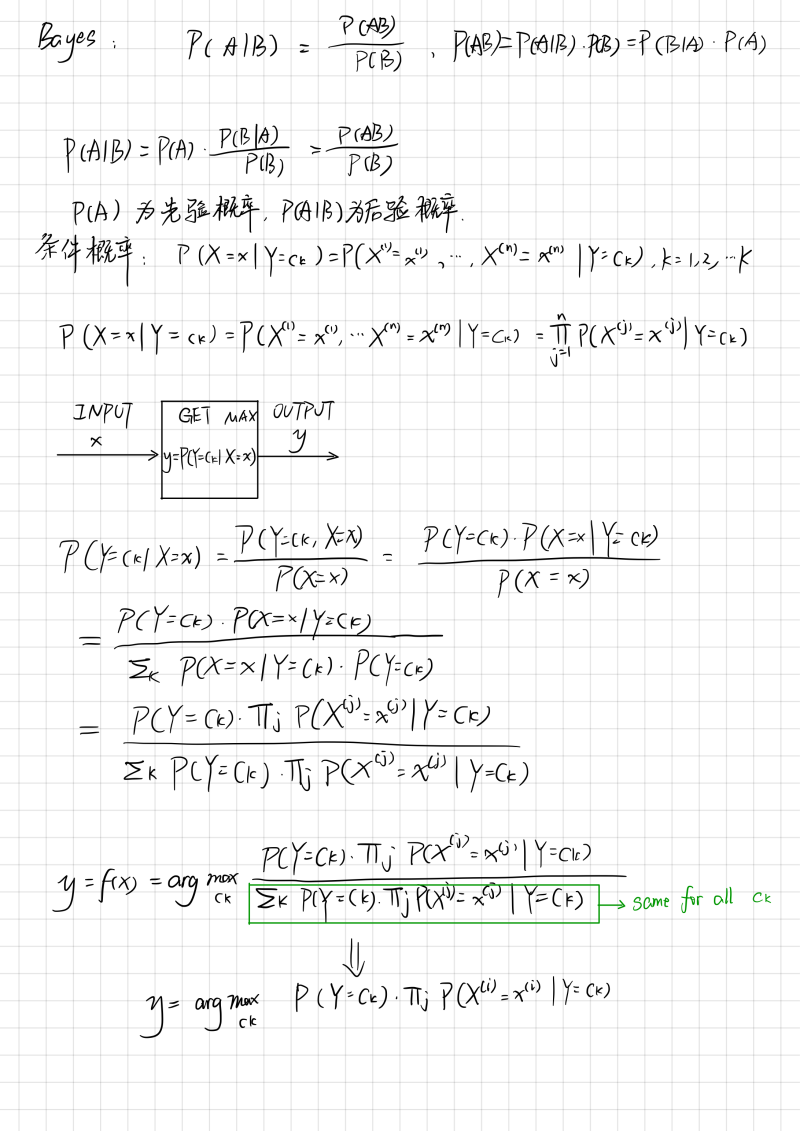 Bayes: P(A|B) = P(AB)/P(B), P(AB)=P(A|B)·P(B)=P(B|A)·P(A)
P(A|B) = P(A)·P(B|A)/P(B) = P(AB)/P(B)
P(A)为先验概率, P(A|B)为后验概率.
条件概率: P(X=x|Y=ck)=P(X⁽¹⁾=x⁽¹⁾, ..., X⁽ⁿ⁾=x⁽ⁿ⁾|Y=ck), k=1,2,...K
P(X=x|Y=ck)=P(X⁽¹⁾=x⁽¹⁾, ... X⁽ⁿ⁾=x⁽ⁿ⁾|Y=ck) = ∏ⁿj=1 P(X⁽ʲ⁾=x⁽ʲ⁾|Y=ck)
INPUT
x
GET MAX
y=P(Y=ck|X=x)
OUTPUT
y
P(Y=ck|X=x) = P(Y=ck, X=x)/P(X=x) = P(Y=ck)·P(X=x|Y=ck)/P(X=x)
= P(Y=ck)·P(X=x|Y=ck)/Σk P(X=x|Y=ck)·P(Y=ck)
= P(Y=ck)·∏j P(X⁽ʲ⁾=x⁽ʲ⁾|Y=ck)/Σk P(Y=ck)·∏j P(X⁽ʲ⁾=x⁽ʲ⁾|Y=ck)
y=f(x)=arg max ck P(Y=ck)·∏j P(X⁽ʲ⁾=x⁽ʲ⁾|Y=ck)/Σk P(Y=ck)·∏j P(X⁽ʲ⁾=x⁽ʲ⁾|Y=ck) → same for all ck
⇓
y= arg max ck P(Y=ck)·∏j P(X⁽ⁱ⁾=x⁽ⁱ⁾|Y=ck)